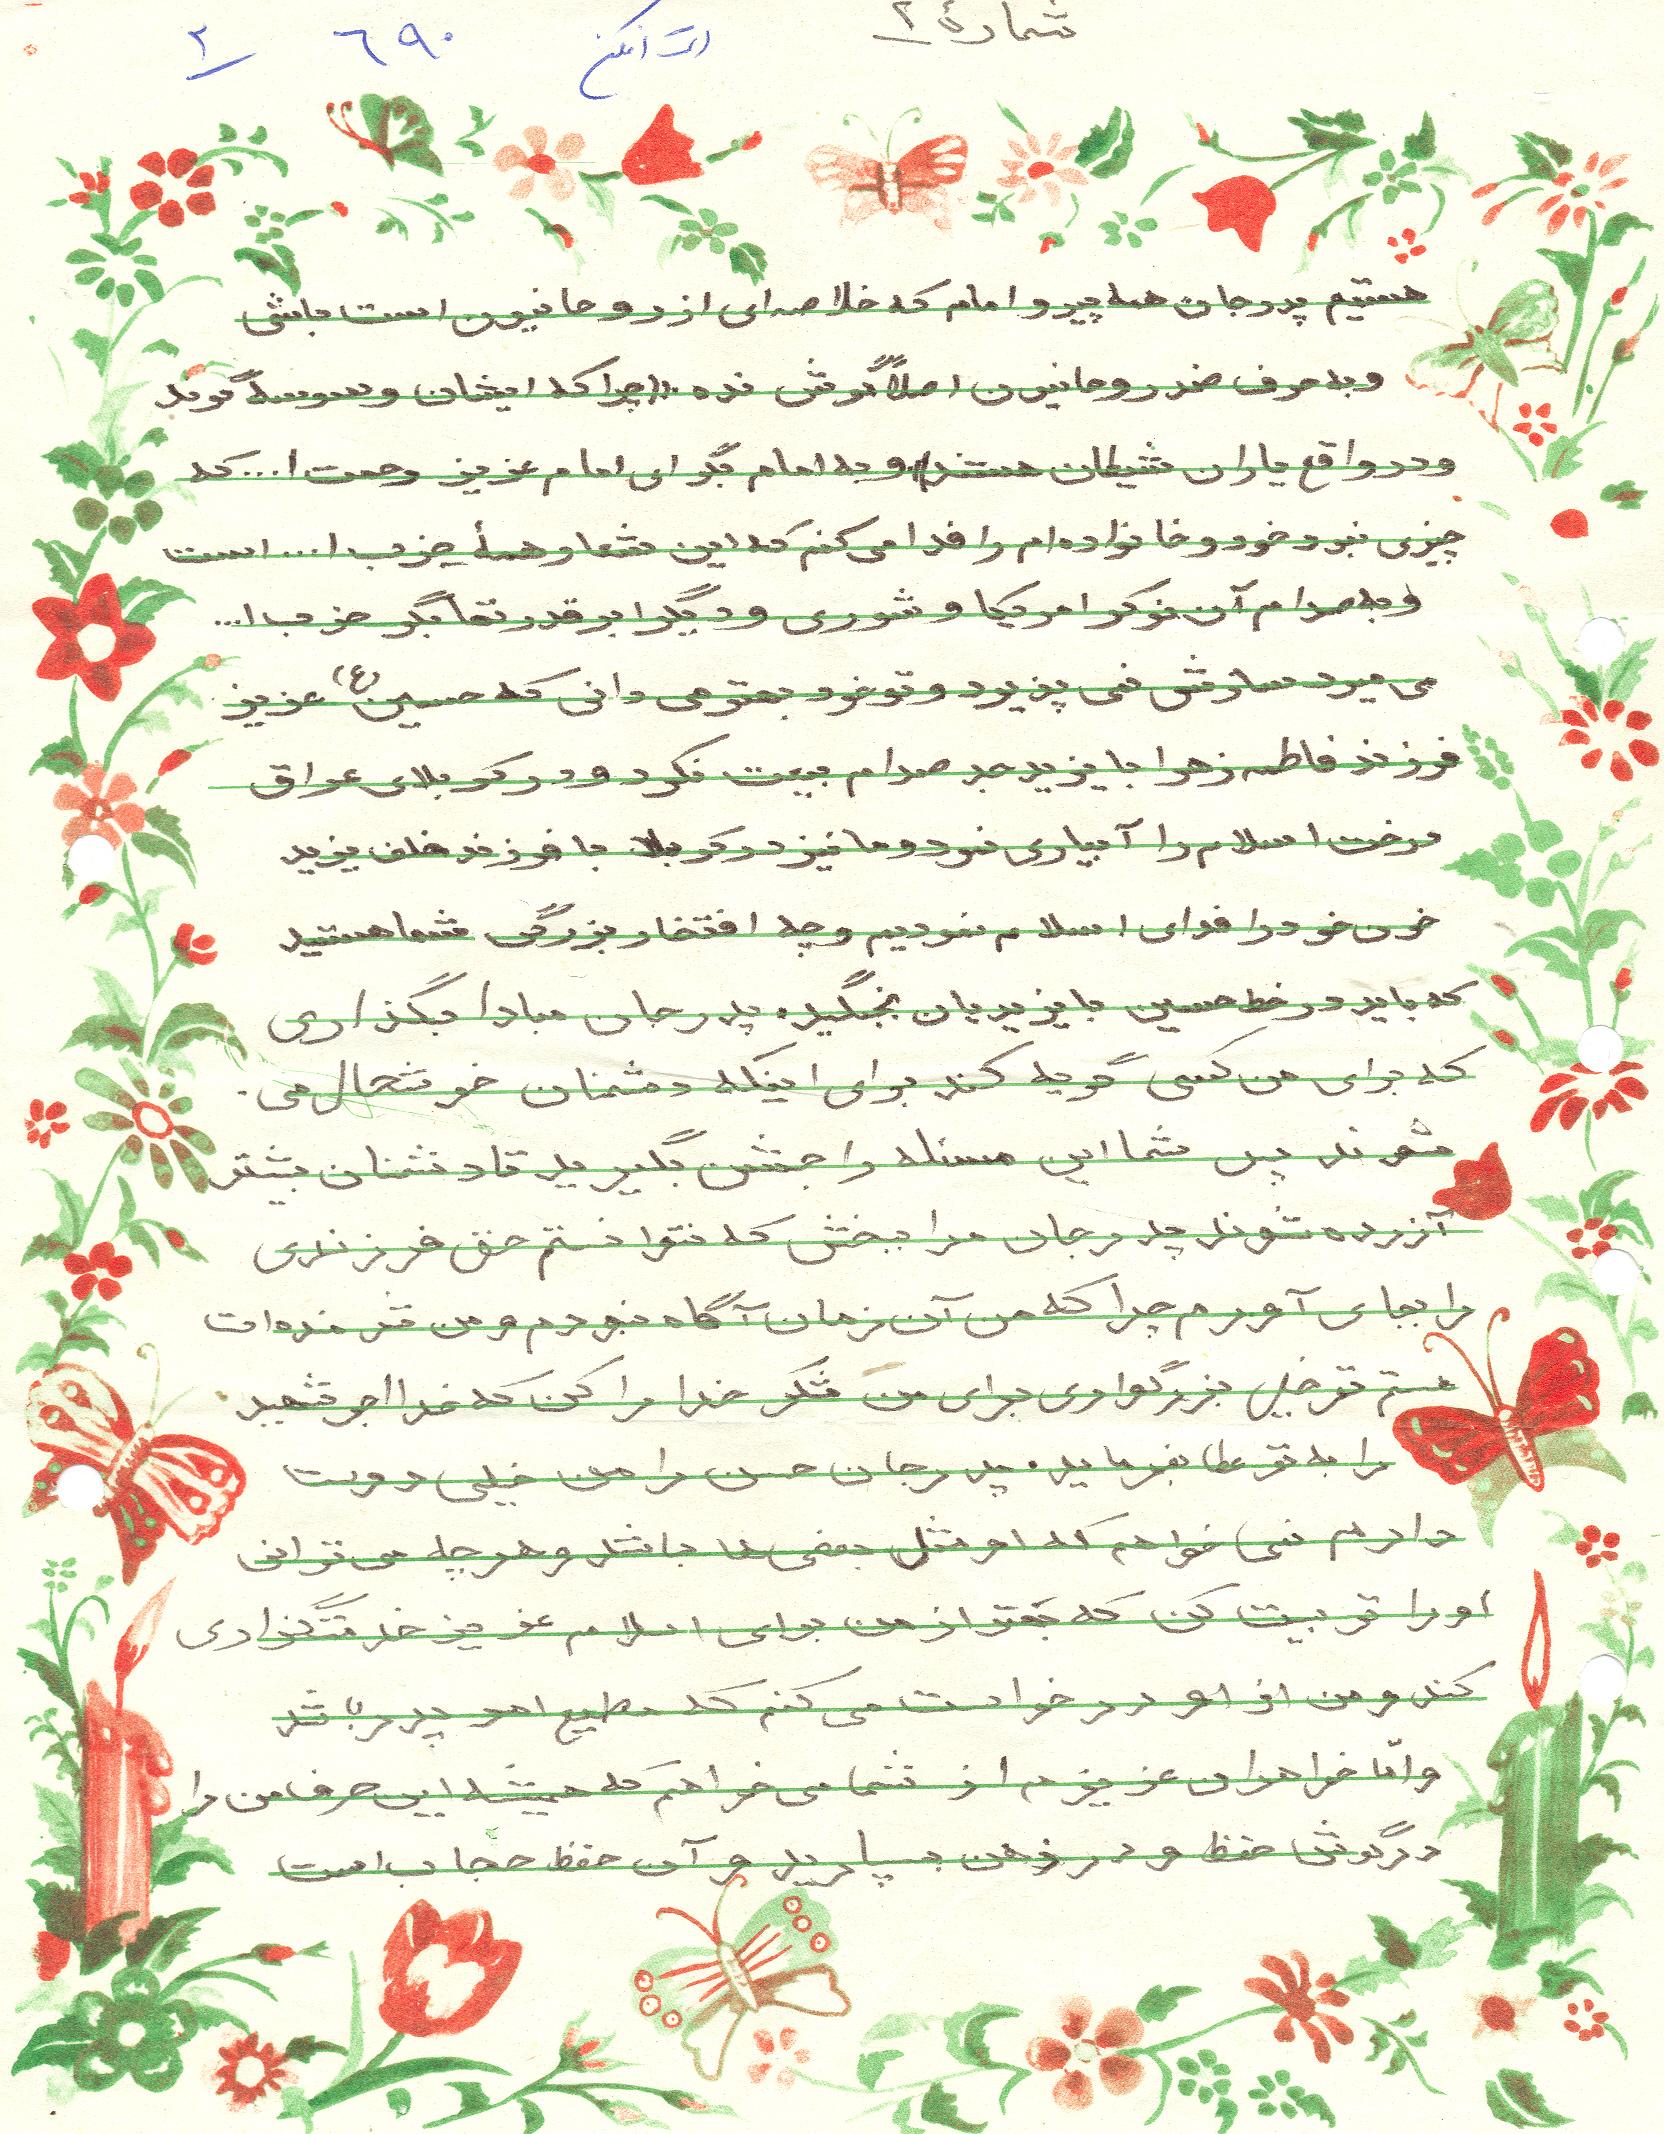 شمارهٔ ۲
۶۹۰
۲
هستیم پدرجان همه پیرو امام که خلاصه‌ای از روحانیون است باش
و به حرف ضد روحانیون اصلاً گوش نده «چرا که ایشان وسوسه گرند
و در واقع یاران شیطان هستند» و به امام بگو ای امام عزیز رحمت ا... که
چیزی نبود خود و خانواده‌ام را فدا می‌کنم که این شعار همهٔ حزب ا... است
و به صدام آن نوکر امریکا و شوروی و دیگر ابرقدرتها بگو حزب ا...
می میرد سازش نمی پذیرد و تو خود بهتر می دانی که حسین (ع) عزیز
فرزند فاطمه زهرا با یزید جد صدام بیعت نکرد و در کربلای عراق
درخت اسلام را آبیاری نمود و ما نیز در کربلا با فرزند خلف یزید
خون خود را فدای اسلام نمودیم و چه افتخار بزرگی شما هستید
که باید در خط حسین با یزیدیان بجنگید. پدرجان مبادا بگذاری
که برای من کسی گریه کند برای اینکه دشمنان خوشحال می.
شوند پس شما این مسئله را جشن بگیرید تا دشمنان بیشتر
آزرده شوند پدرجان مرا ببخش که نتوانستم حق فرزندی
را بجای آورم چرا که من آن زمان آگاه نبودم و من شرمنده‌ات
هستم تو خیلی بزرگواری برای من شکر خدا را کن که خدا اجر شهید
را به تو عطا بفرماید. پدرجان حسن را من خیلی دوست
دارم نمی خواهم که او مثل بعضی ها باشد و هر چه می توانی
او را تربیت کن که بهتر از من برای اسلام عزیز خدمتگزاری
کند و من از او درخواست می کنم که مطیع امر پدر باشد
و امّا خواهران عزیزم از شما می خواهم که همیشه این حرف من را
در گوش حفظ و در ذهن بسپارید و آن حفظ حجاب است